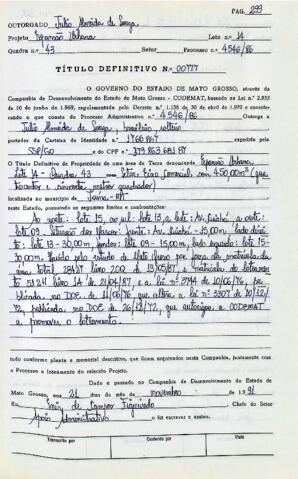 PAG. 293
OUTORGADO Julio Almeida de Souza
Projeto Expansão Urbana Lote n.º 14
Quadra n.º 43 Setor Processo n.º 4546/86
TÍTULO DEFINITIVO N.º 00777
O GOVERNO DO ESTADO DE MATO GROSSO, através da
Companhia de Desenvolvimento do Estado de Mato Grosso - CODEMAT, baseado na Lei n.º 2.933
de 10 de junho de 1969, regulamentado pelo Decreto n.º 1.138 de 30 de abril de 1970 e considerando
o que consta do Processo Administrativo n.º 4546/86 Outorga a
Julio Almeida de Souza, brasileiro, solteiro
portador da Carteira de Identidade n.º expedida pela
SSP/GO e do CPF n.º
O Título Definitivo de Propriedade de uma área de Terra denominada Expansão Urbana
Lote 14 - Quadra 43 Setor Comercial, com 450,00m² (quatrocentos
e cinquenta metros quadrados)
localizada no município de Juína-MT
neste Estado, possuindo os seguintes limites e confrontações:
Ao norte: lote 15, ao sul: lote 13, a leste: Av. Cuiabá, a oeste:
lote 09. Frente: Av. Cuiabá - 15,00m, lado direito:
lote 13 - 30,00m, fundo: lote 09 - 15,00m, lado esquerdo: lote 15-
30,00m. pelo Estado de Mato Grosso por força da matrícula da
área total 28427 livro 202 de 19/05/87 e matrícula do loteamento
livro 14 de 21/04/87 e a lei n.º 3744 de 10/06/76, publicada
no DOE de 11/06/76 que altera a lei n.º 3307 de 10/12/
72, publicada no DOE de 26/12/72, que autoriza a CODEMAT
a promover o loteamento.
tudo conforme planta e memorial descritivo, que ficam arquivados nesta Companhia, juntamente com
o Processo e loteamento do referido Projeto.
Dado e passado na Companhia de Desenvolvimento do Estado de
Mato Grosso, aos 21 dias do mês de novembro de 1991
Eu, de Campos Figueiredo, Chefe do Setor
Apoio Administrativo o fiz escrever e assino.
Transcrito por Conferido por Visto